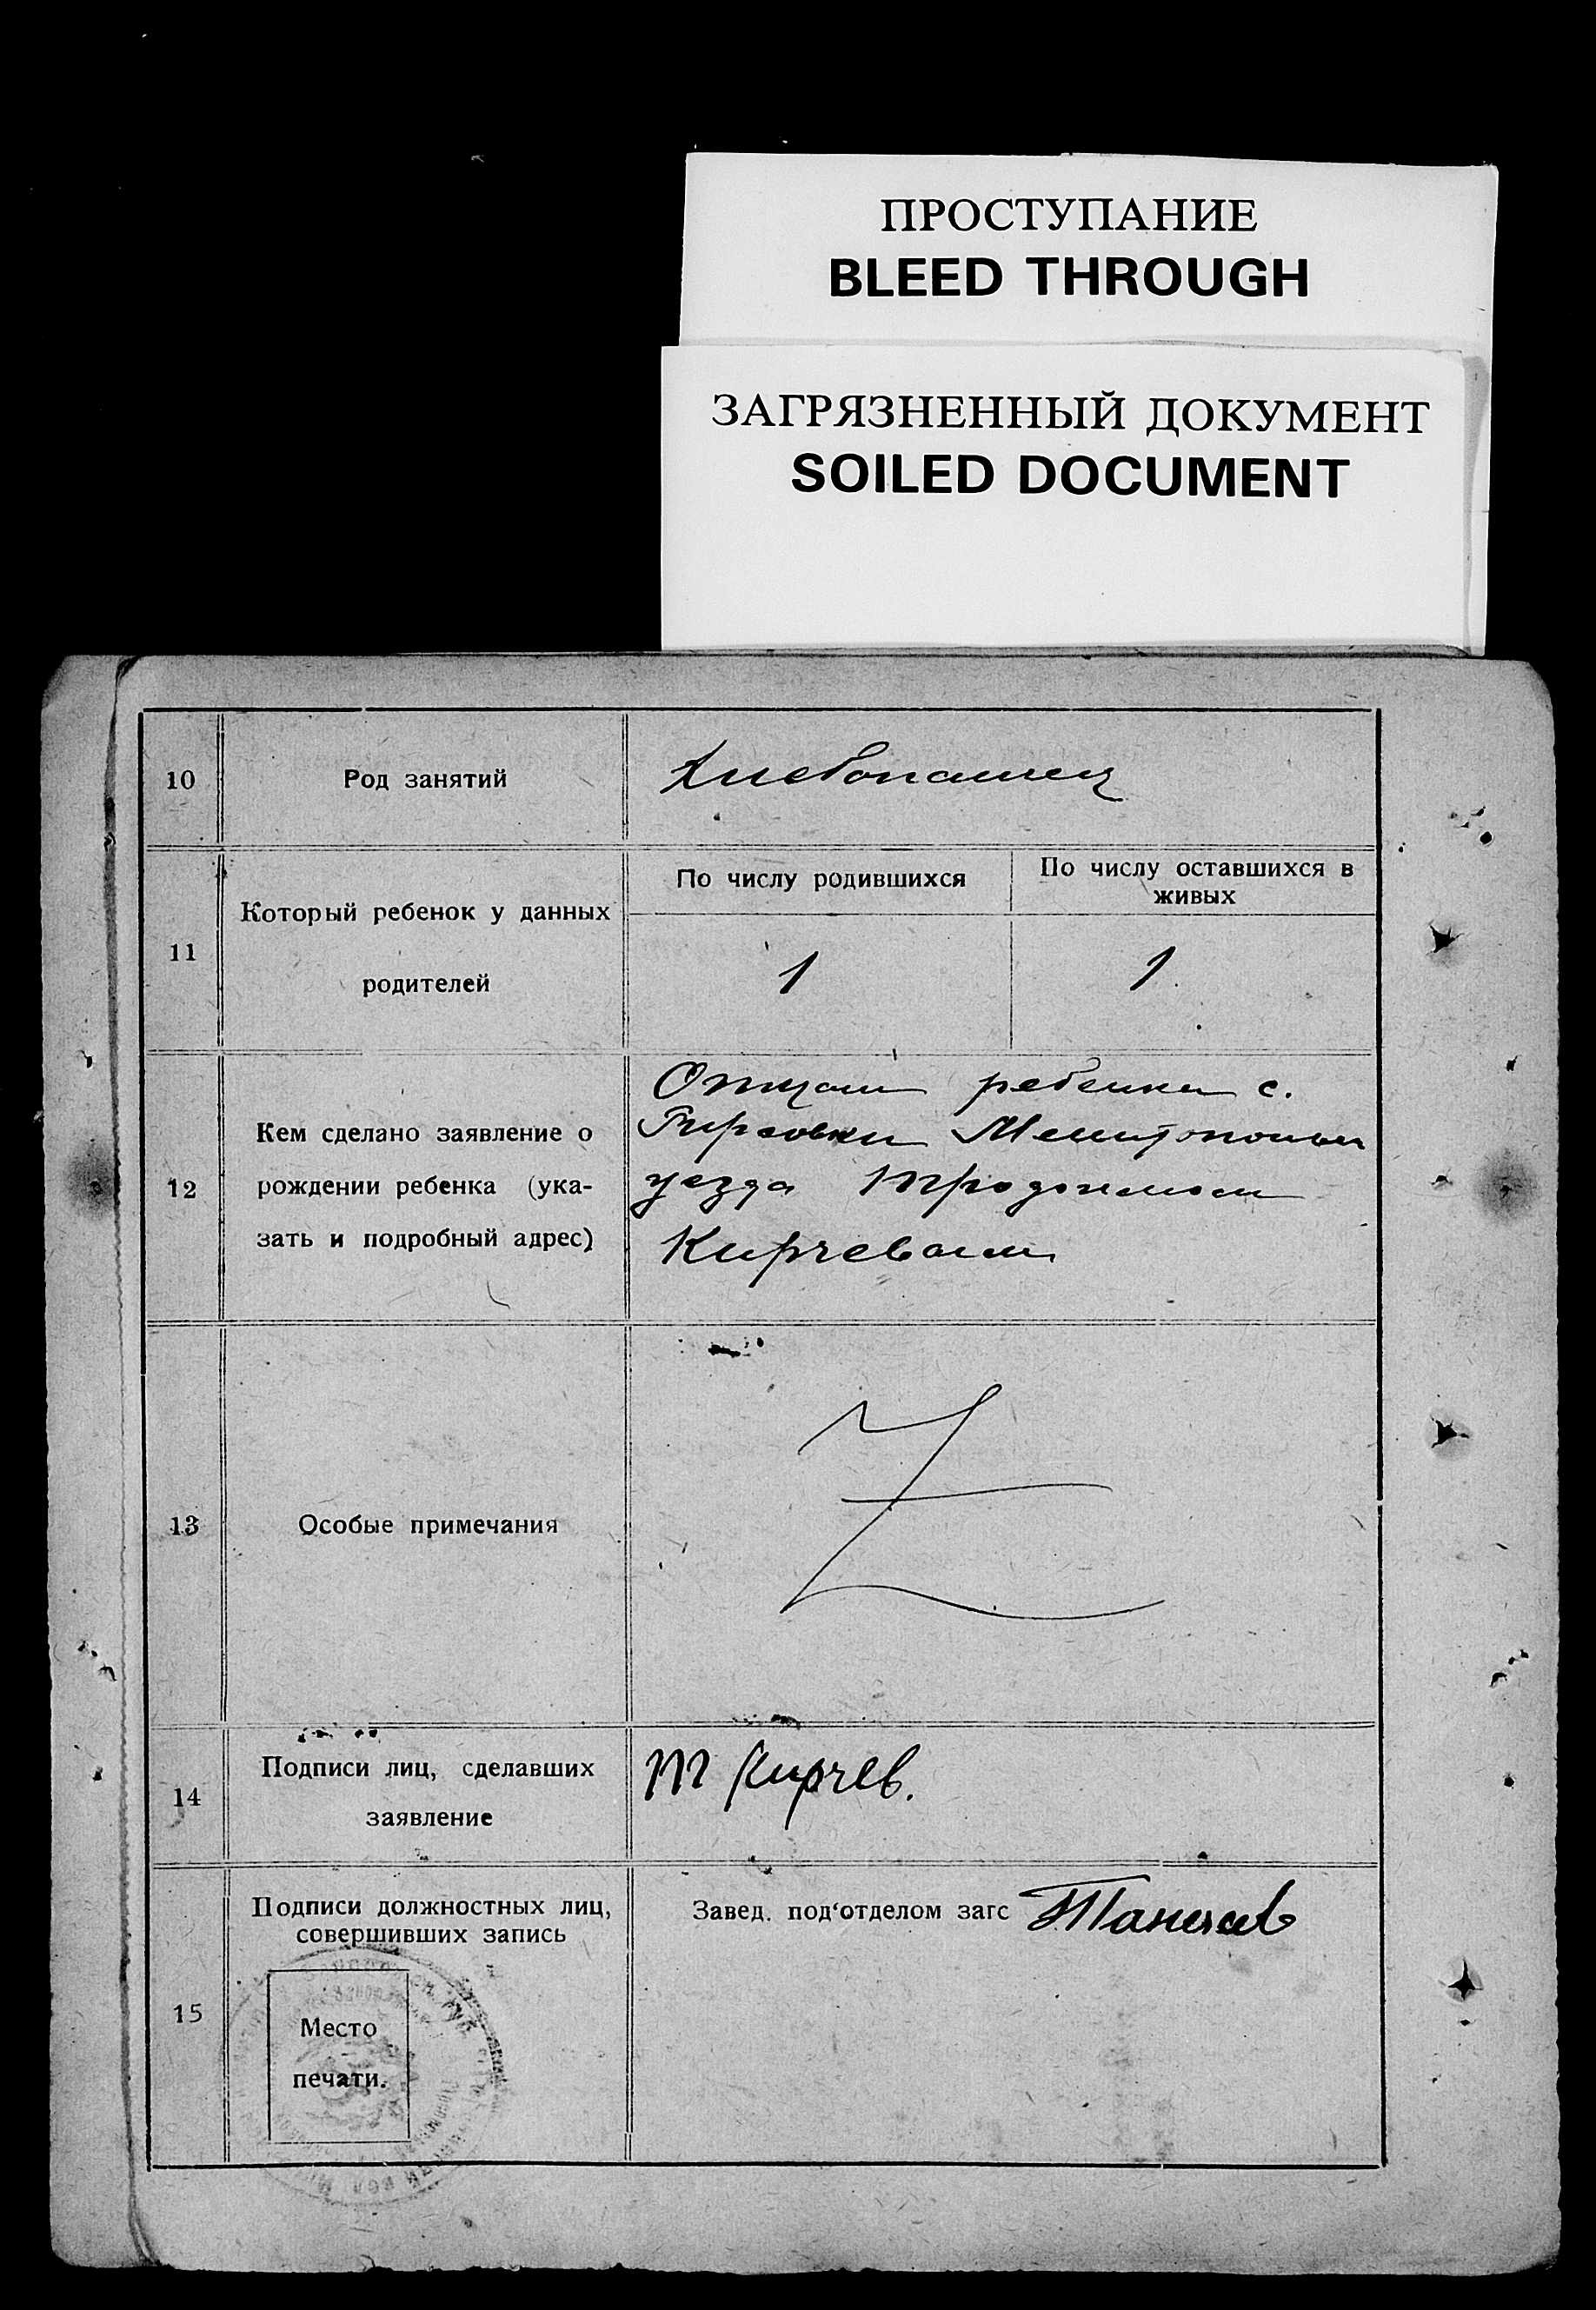 ПРОСТУПАНИЕ
BLEED THROUGH
ЗАГРЯЗНЕННЫЙ ДОКУМЕНТ
SOILED DOCUMENT
10 Род занятий Хлебопашец
11 Который ребенок у данных родителей
По числу родившихся
По числу оставшихся в живых
1 1
12 Кем сделано заявление о
рождении ребенка (ука-
зать и подробный адрес)
Отцом ребенка с.
Гирсовки
уезда
Кирчевым
13 Особые примечания
Z
14 Подписи лиц, сделавших
заявление
Кирчев.
15 Подписи должностных лиц,
совершивших запись
Завед. под‘отделом загс
Место
печати.